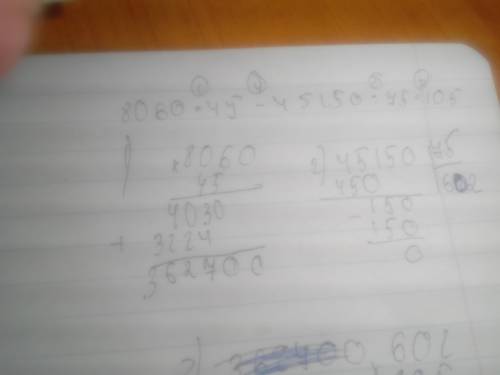 8060 · 45 - 45150 : 75 · 105
1) × 8060
45
4030
+ 3224
362700
2) 45150 75
450 602
- 150
150
0
602